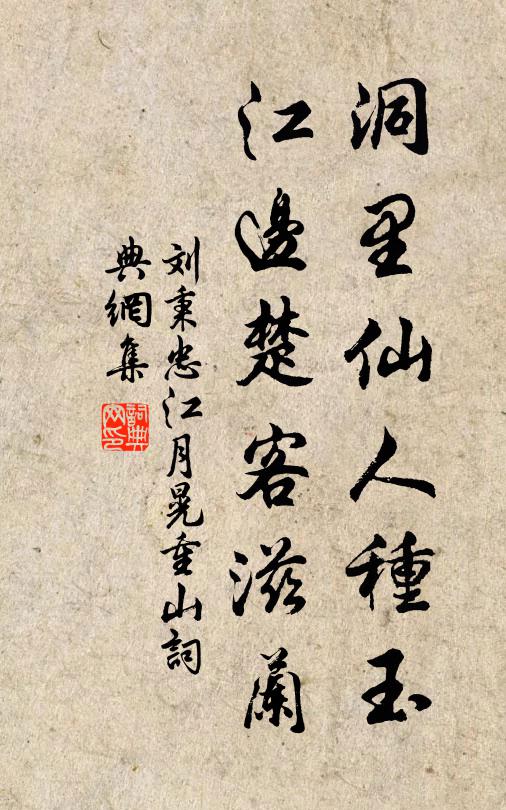 洞里仙人種玉
江邊楚客滋蘭
刘秉忠江月晃重山詞
典網集
詞典网印